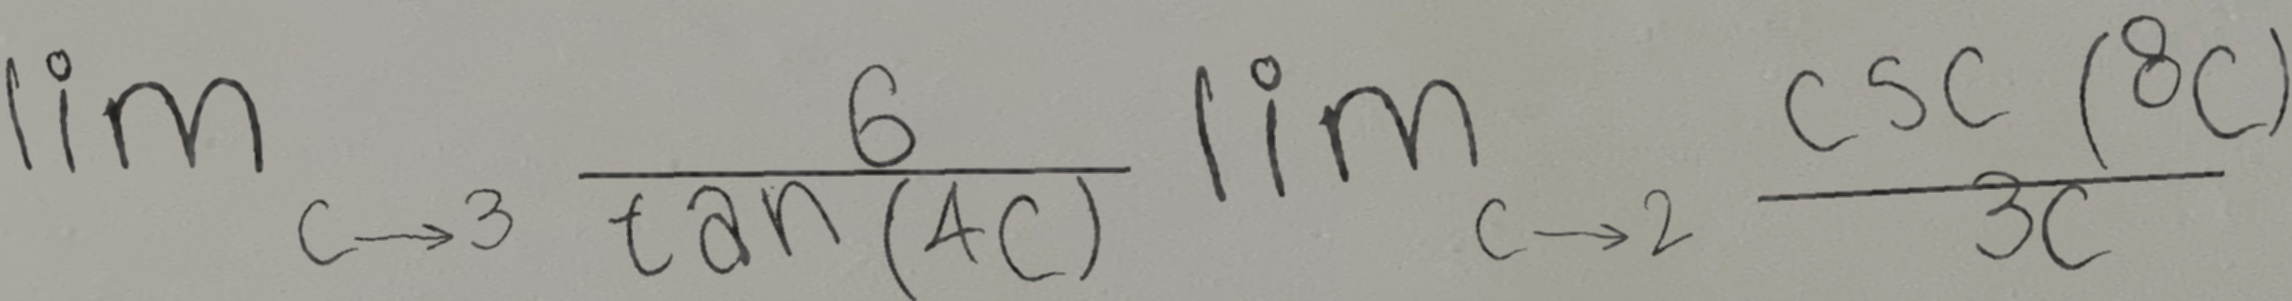 \lim_{c \to 3} \frac{6}{\tan(4c)} \lim_{c \to 2} \frac{\csc(8c)}{3c}